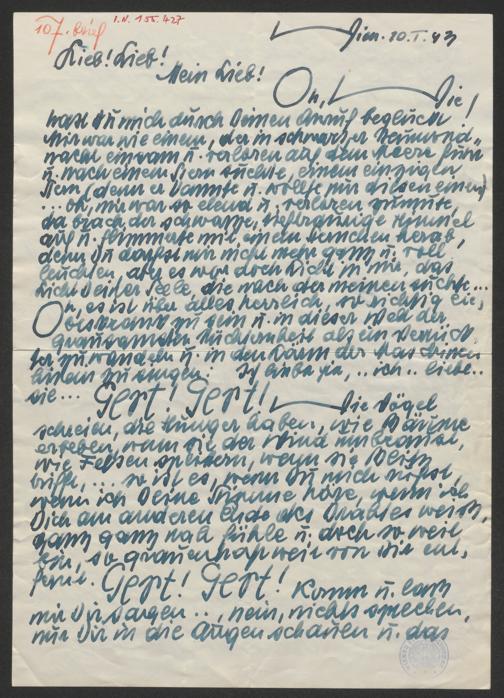 107. Brief I.N. 155.427
Wien. 10.I.43
Lieb! Lieb!
Mein Lieb!
Oh, Wie
hast Du mich durch Deinen Anruf beglückt!
Mir war wie einem, der in schwarzer Neumond-
nacht einsam u. verloren auf dem Meere fuhr
u. nach einem Stern suchte, einem einzigen
Stern, (denn er kannte u. wollte nur diesen einen)
... oh, mir war so elend u. verloren zumute,
da brach der schwarze, Himmel
auf u. flimmerte mit einem Sternchen herab,
denn Du darfst mir nicht mehr ganz u. voll
leuchten, aber es war doch Licht in mir, das
Licht Deiner Seele, die nach der meinen suchte...
Oh, es ist über alles herrlich, so richtig lie-
beskrank zu sein u. in dieser Welt der
grausamen Nüchternheit als ein Verrück-
ter zu wandeln u. in den Lärm der
hinein zu singen: Ich liebe ja, .. ich .. liebe ..
sie... Gert! Gert! Wie Vögel
schreien, die Hunger haben, wie Bäume
erbeben, wenn sie der Wind umbraust,
wie Felsen splittern, wenn sie
trifft, ... so ist es, wenn Du mich rufst,
wenn ich Deine Stimme höre, wenn ich
Dich am anderen Ende des Drahtes weiss,
ganz ganz nah fühle u. doch so weit
bin, so grauenhaft weit von Dir ent-
fernt. Gert! Gert! Komm u. lass
mir Dir sagen .., nein, nichts sprechen,
nur Dir in die Augen schauen u. das